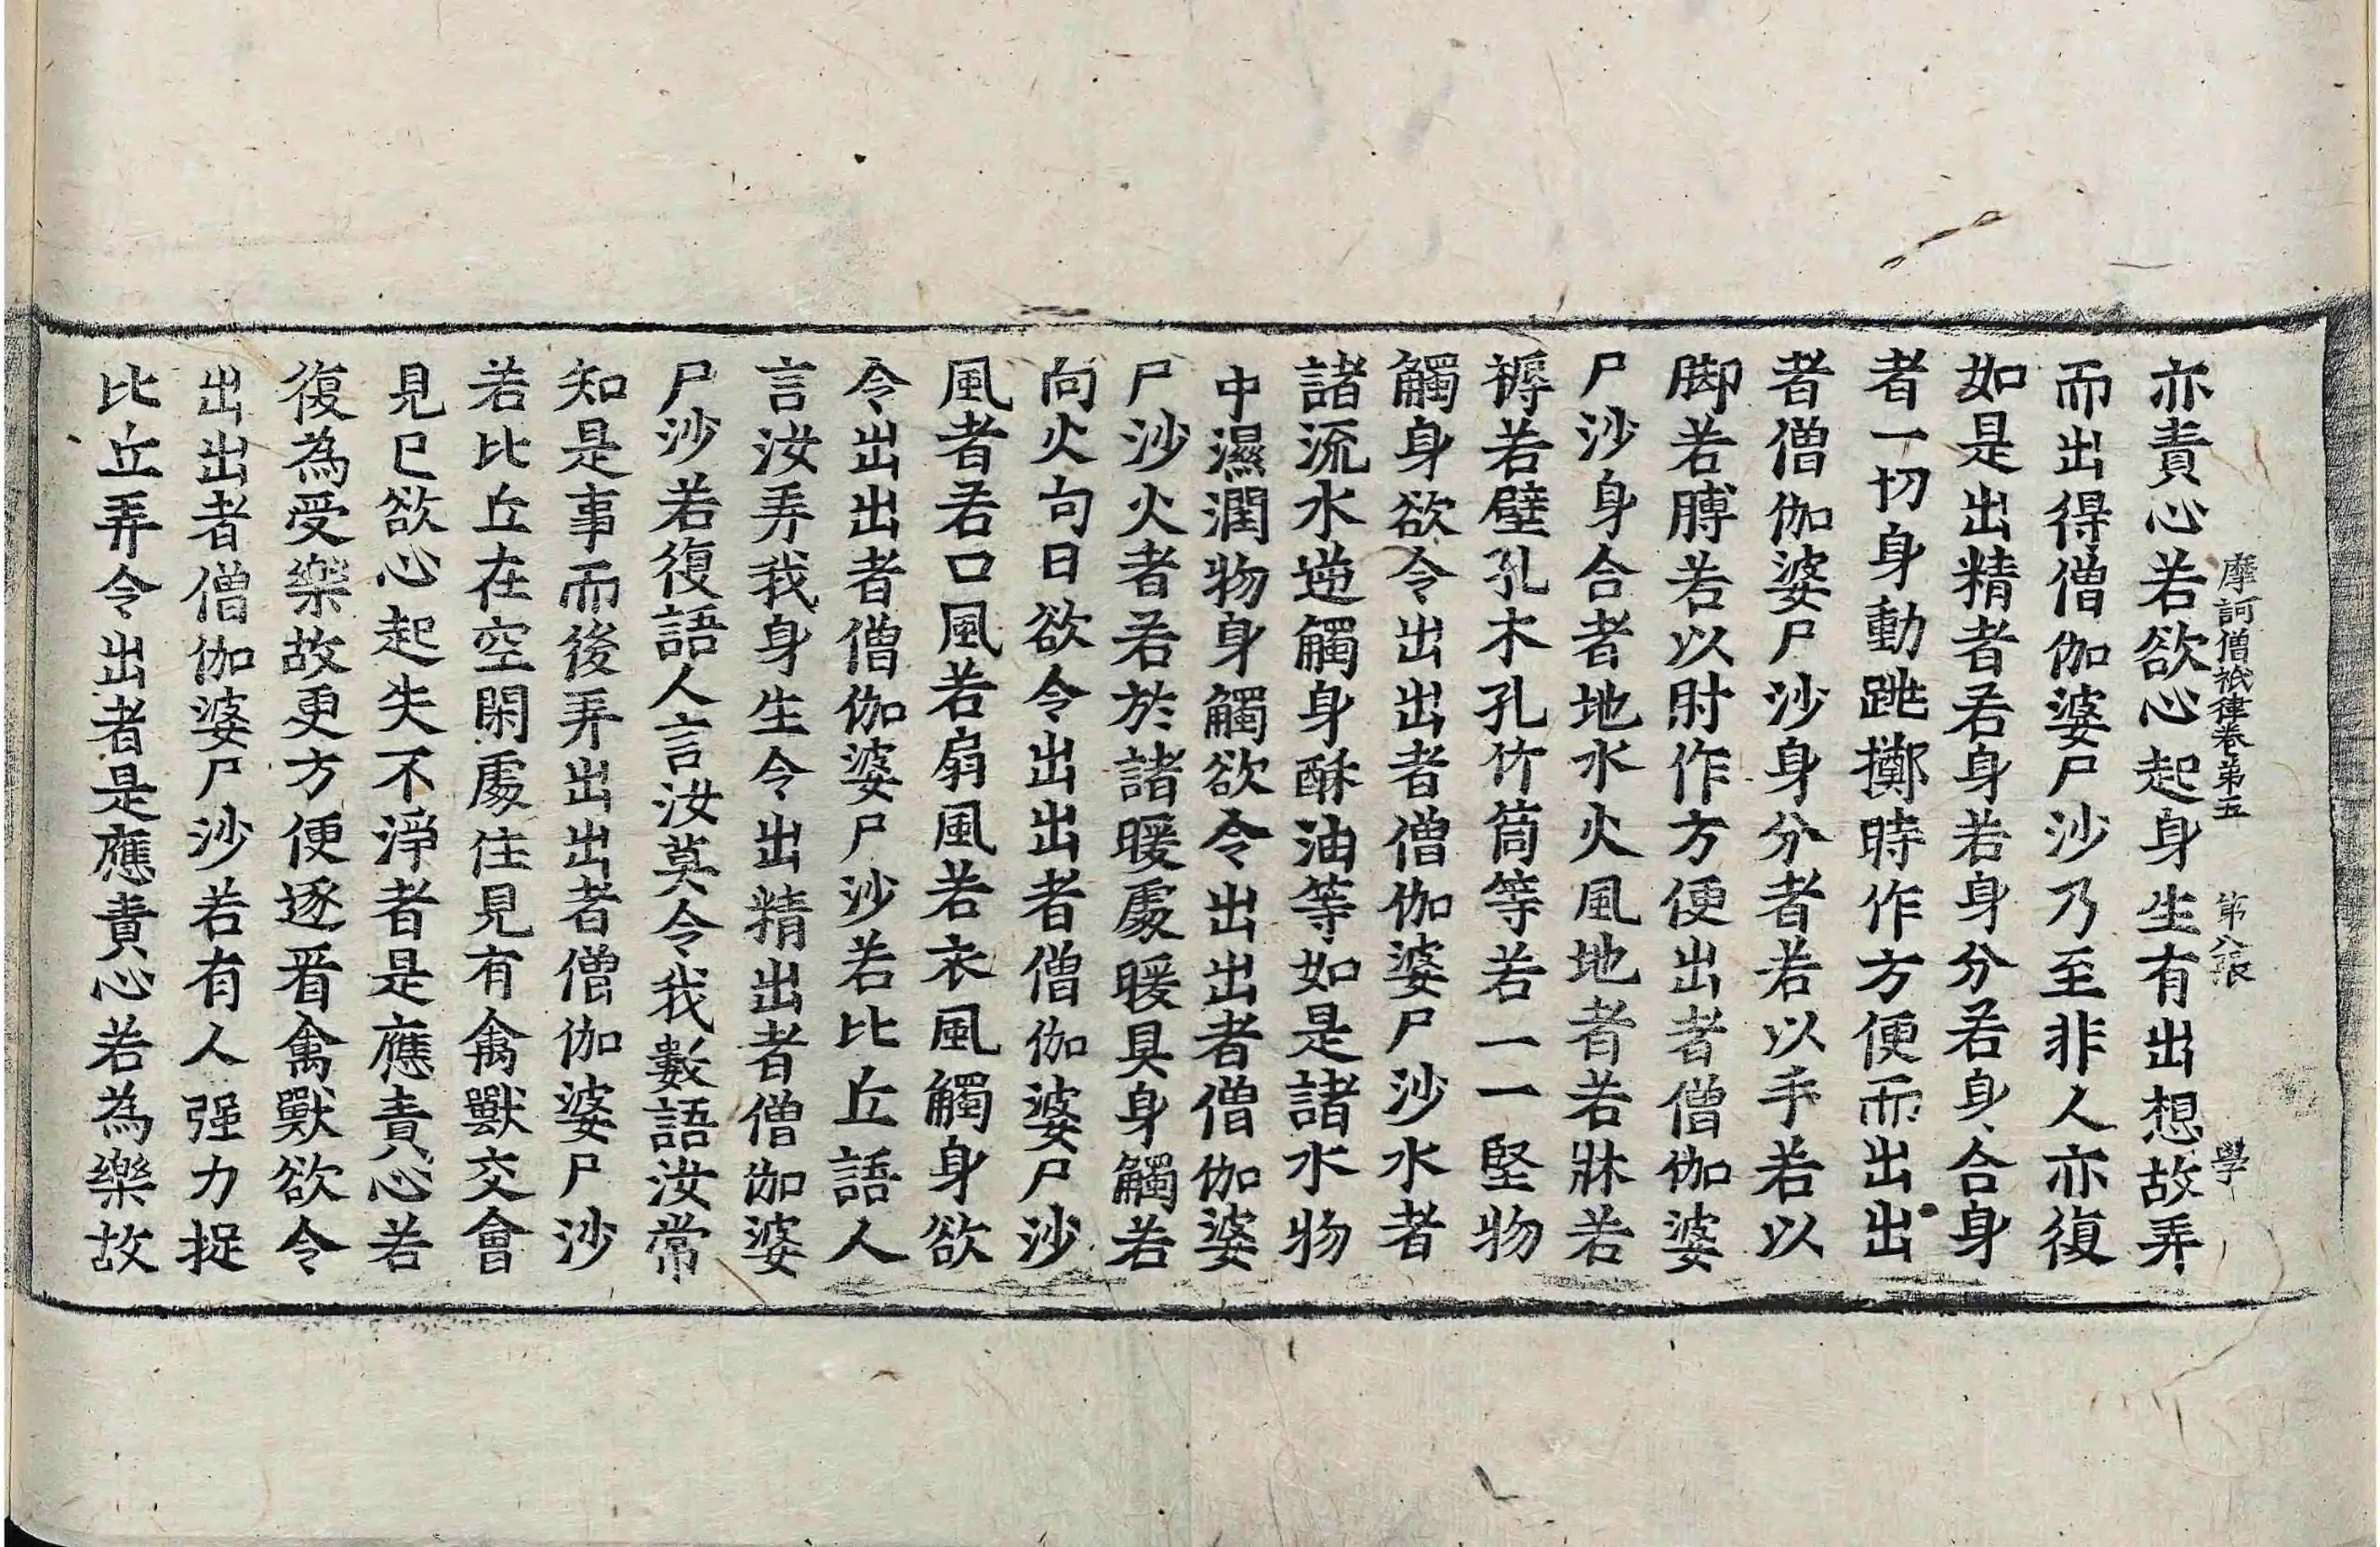 摩訶僧祇律卷第五　第八張　學
亦責心若欲心起身生有出想故弄
而出得僧伽婆尸沙乃至非人亦復
如是出精者若身若身分若身合身
者一切身動跳擲時作方便而出出
者僧伽婆尸沙身分者若以手若以
脚若膞若以肘作方便出者僧伽婆
尸沙身合者地水火風地者若牀若
褥若壁孔木孔竹筒等若一一堅物
觸身欲令出出者僧伽婆尸沙水者
諸流水逆觸身酥油等如是諸水物
中濕潤物身觸欲令出出者僧伽婆
尸沙火者若於諸暖處暖具身觸若
向火向日欲令出出者僧伽婆尸沙
風者若口風若扇風若衣風觸身欲
令出出者僧伽婆尸沙若比丘語人
言汝弄我身生令出精出者僧伽婆
尸沙若復語人言汝莫令我數語汝常
知是事而後弄出出者僧伽婆尸沙
若比丘在空閑處住見有禽獸交會
見已欲心起失不淨者是應責心若
復為受樂故更方便逐看禽獸欲令
出出者僧伽婆尸沙若有人强力捉
比丘弄令出者是應責心若為樂故